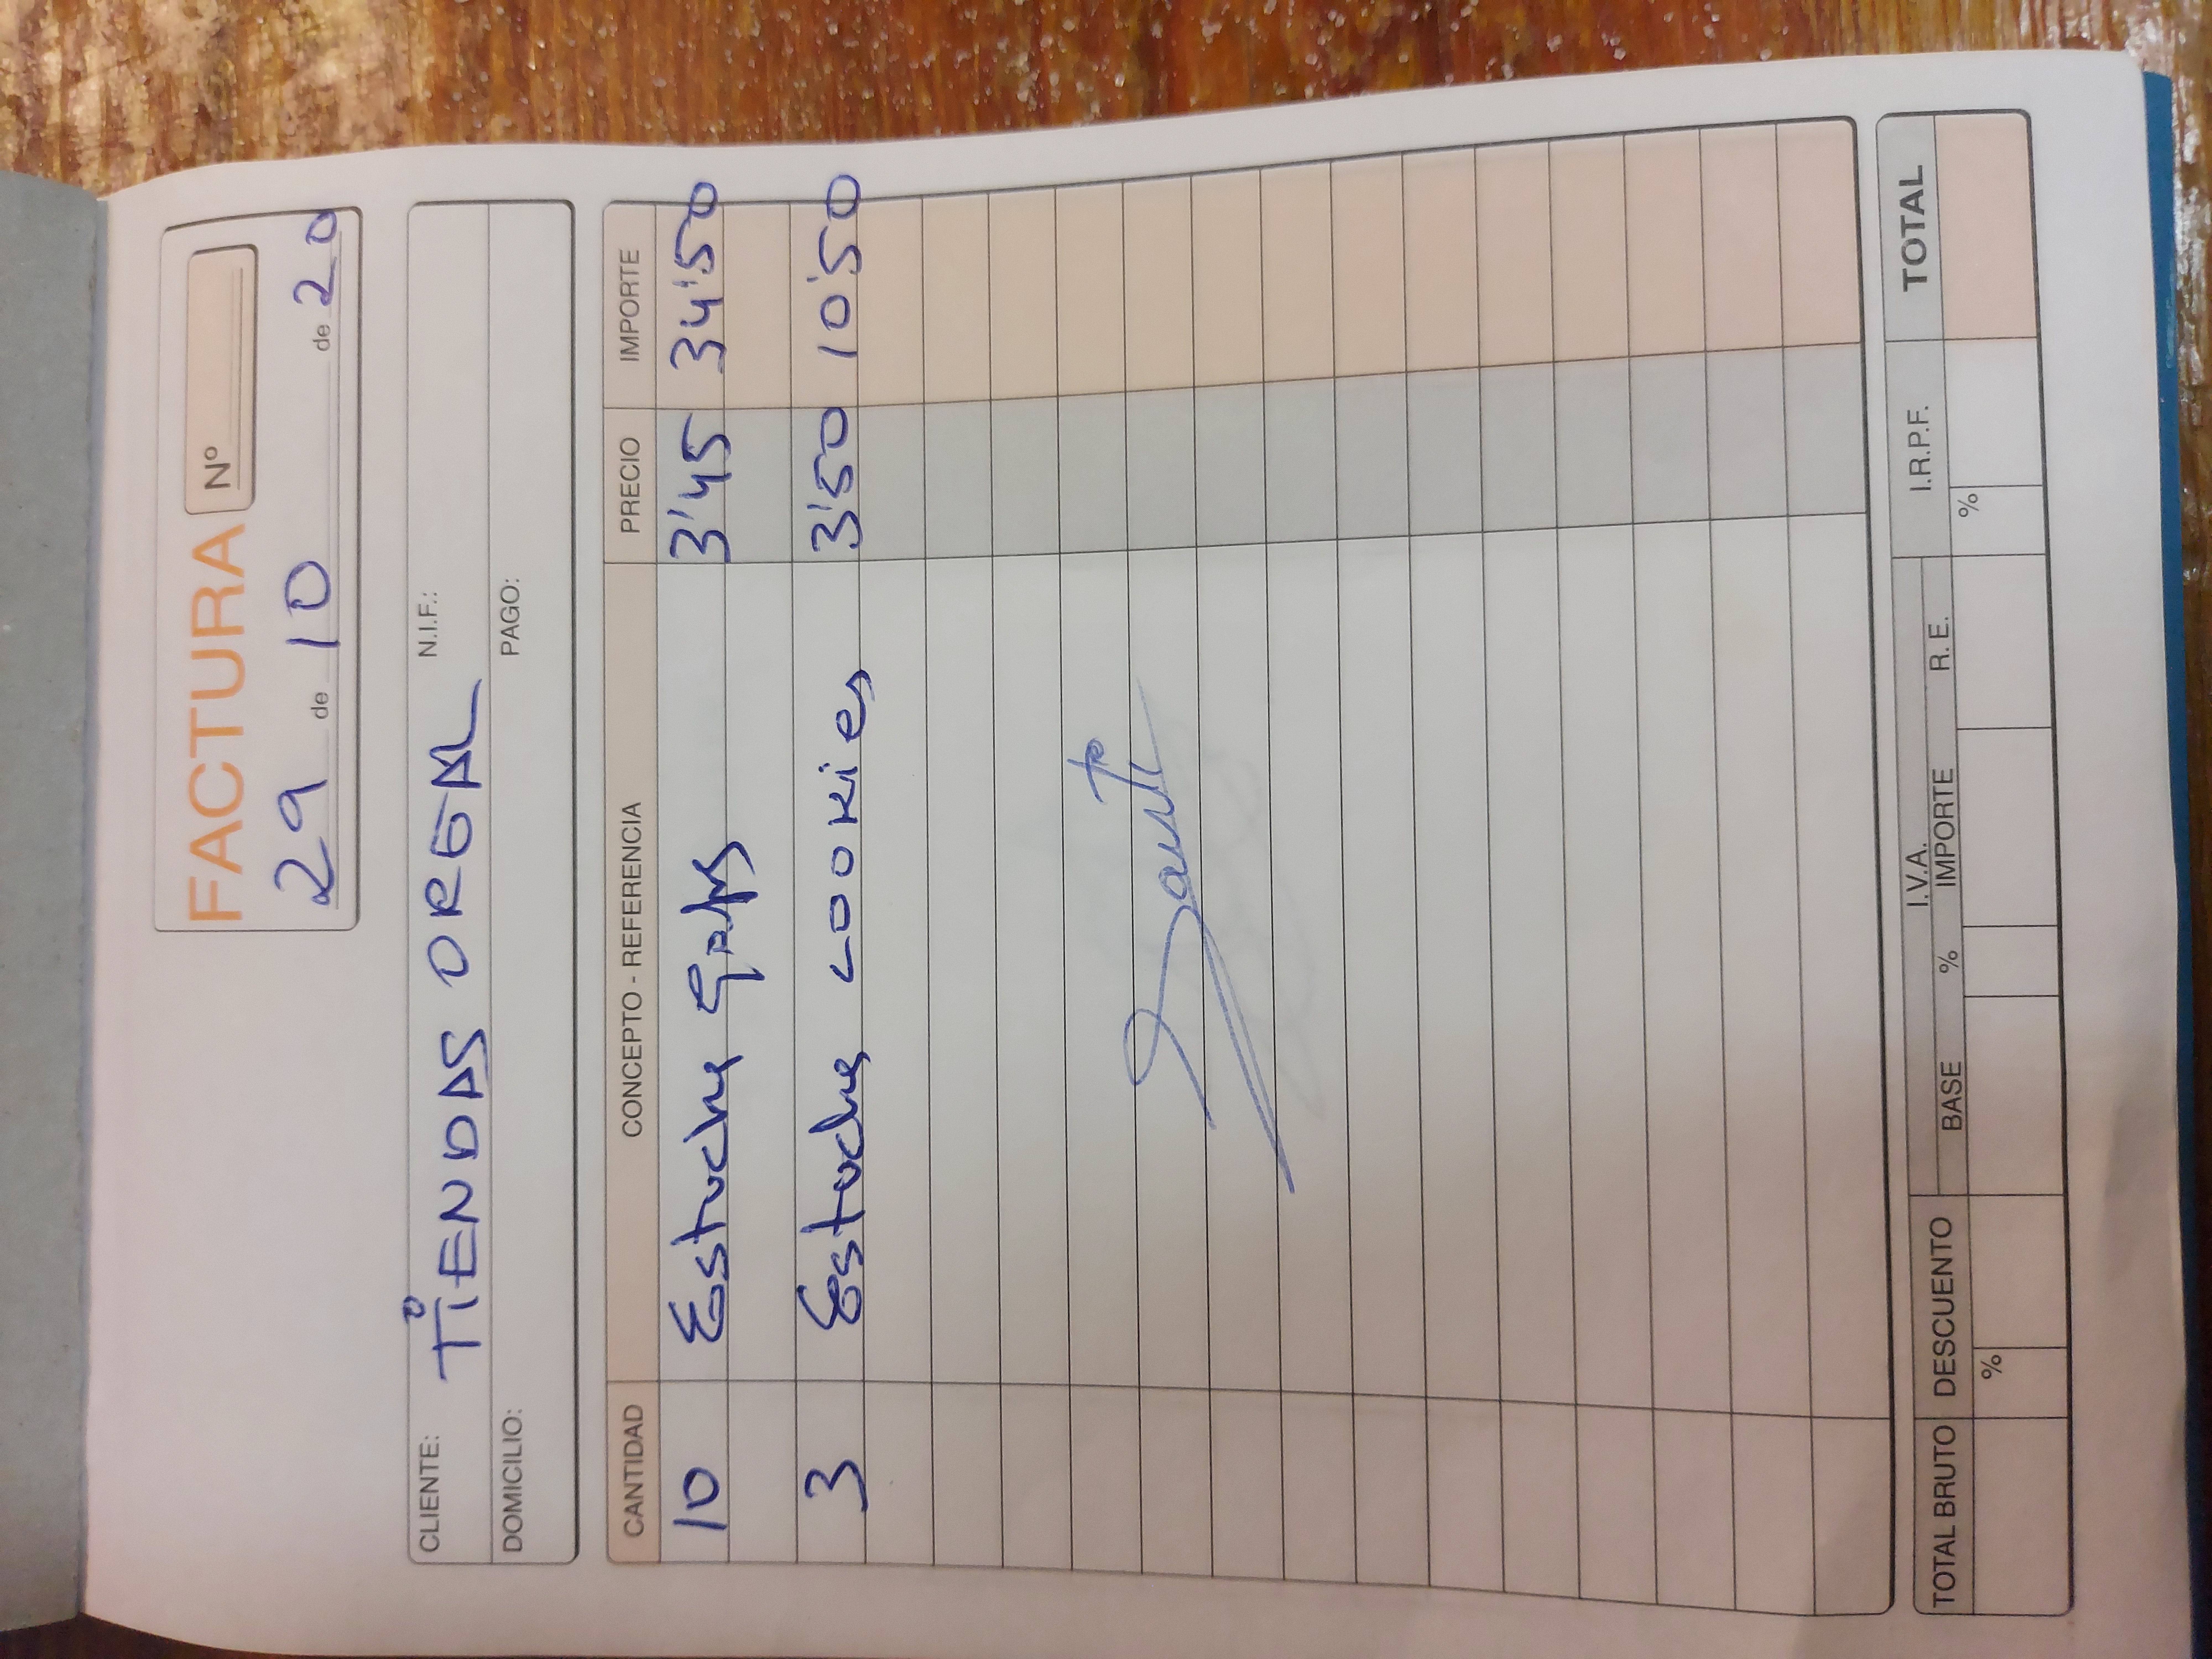 FACTURA Nº
29 de 10 de 20
CLIENTE: TIENDAS OREAL N.I.F.:
DOMICILIO: PAGO:
CANTIDAD CONCEPTO - REFERENCIA PRECIO IMPORTE
10 Estuche 3'45 34'50
3 Estuche cookies 3'50 10'50
TOTAL BRUTO DESCUENTO I.V.A. I.R.P.F. TOTAL
% BASE % IMPORTE R.E. %